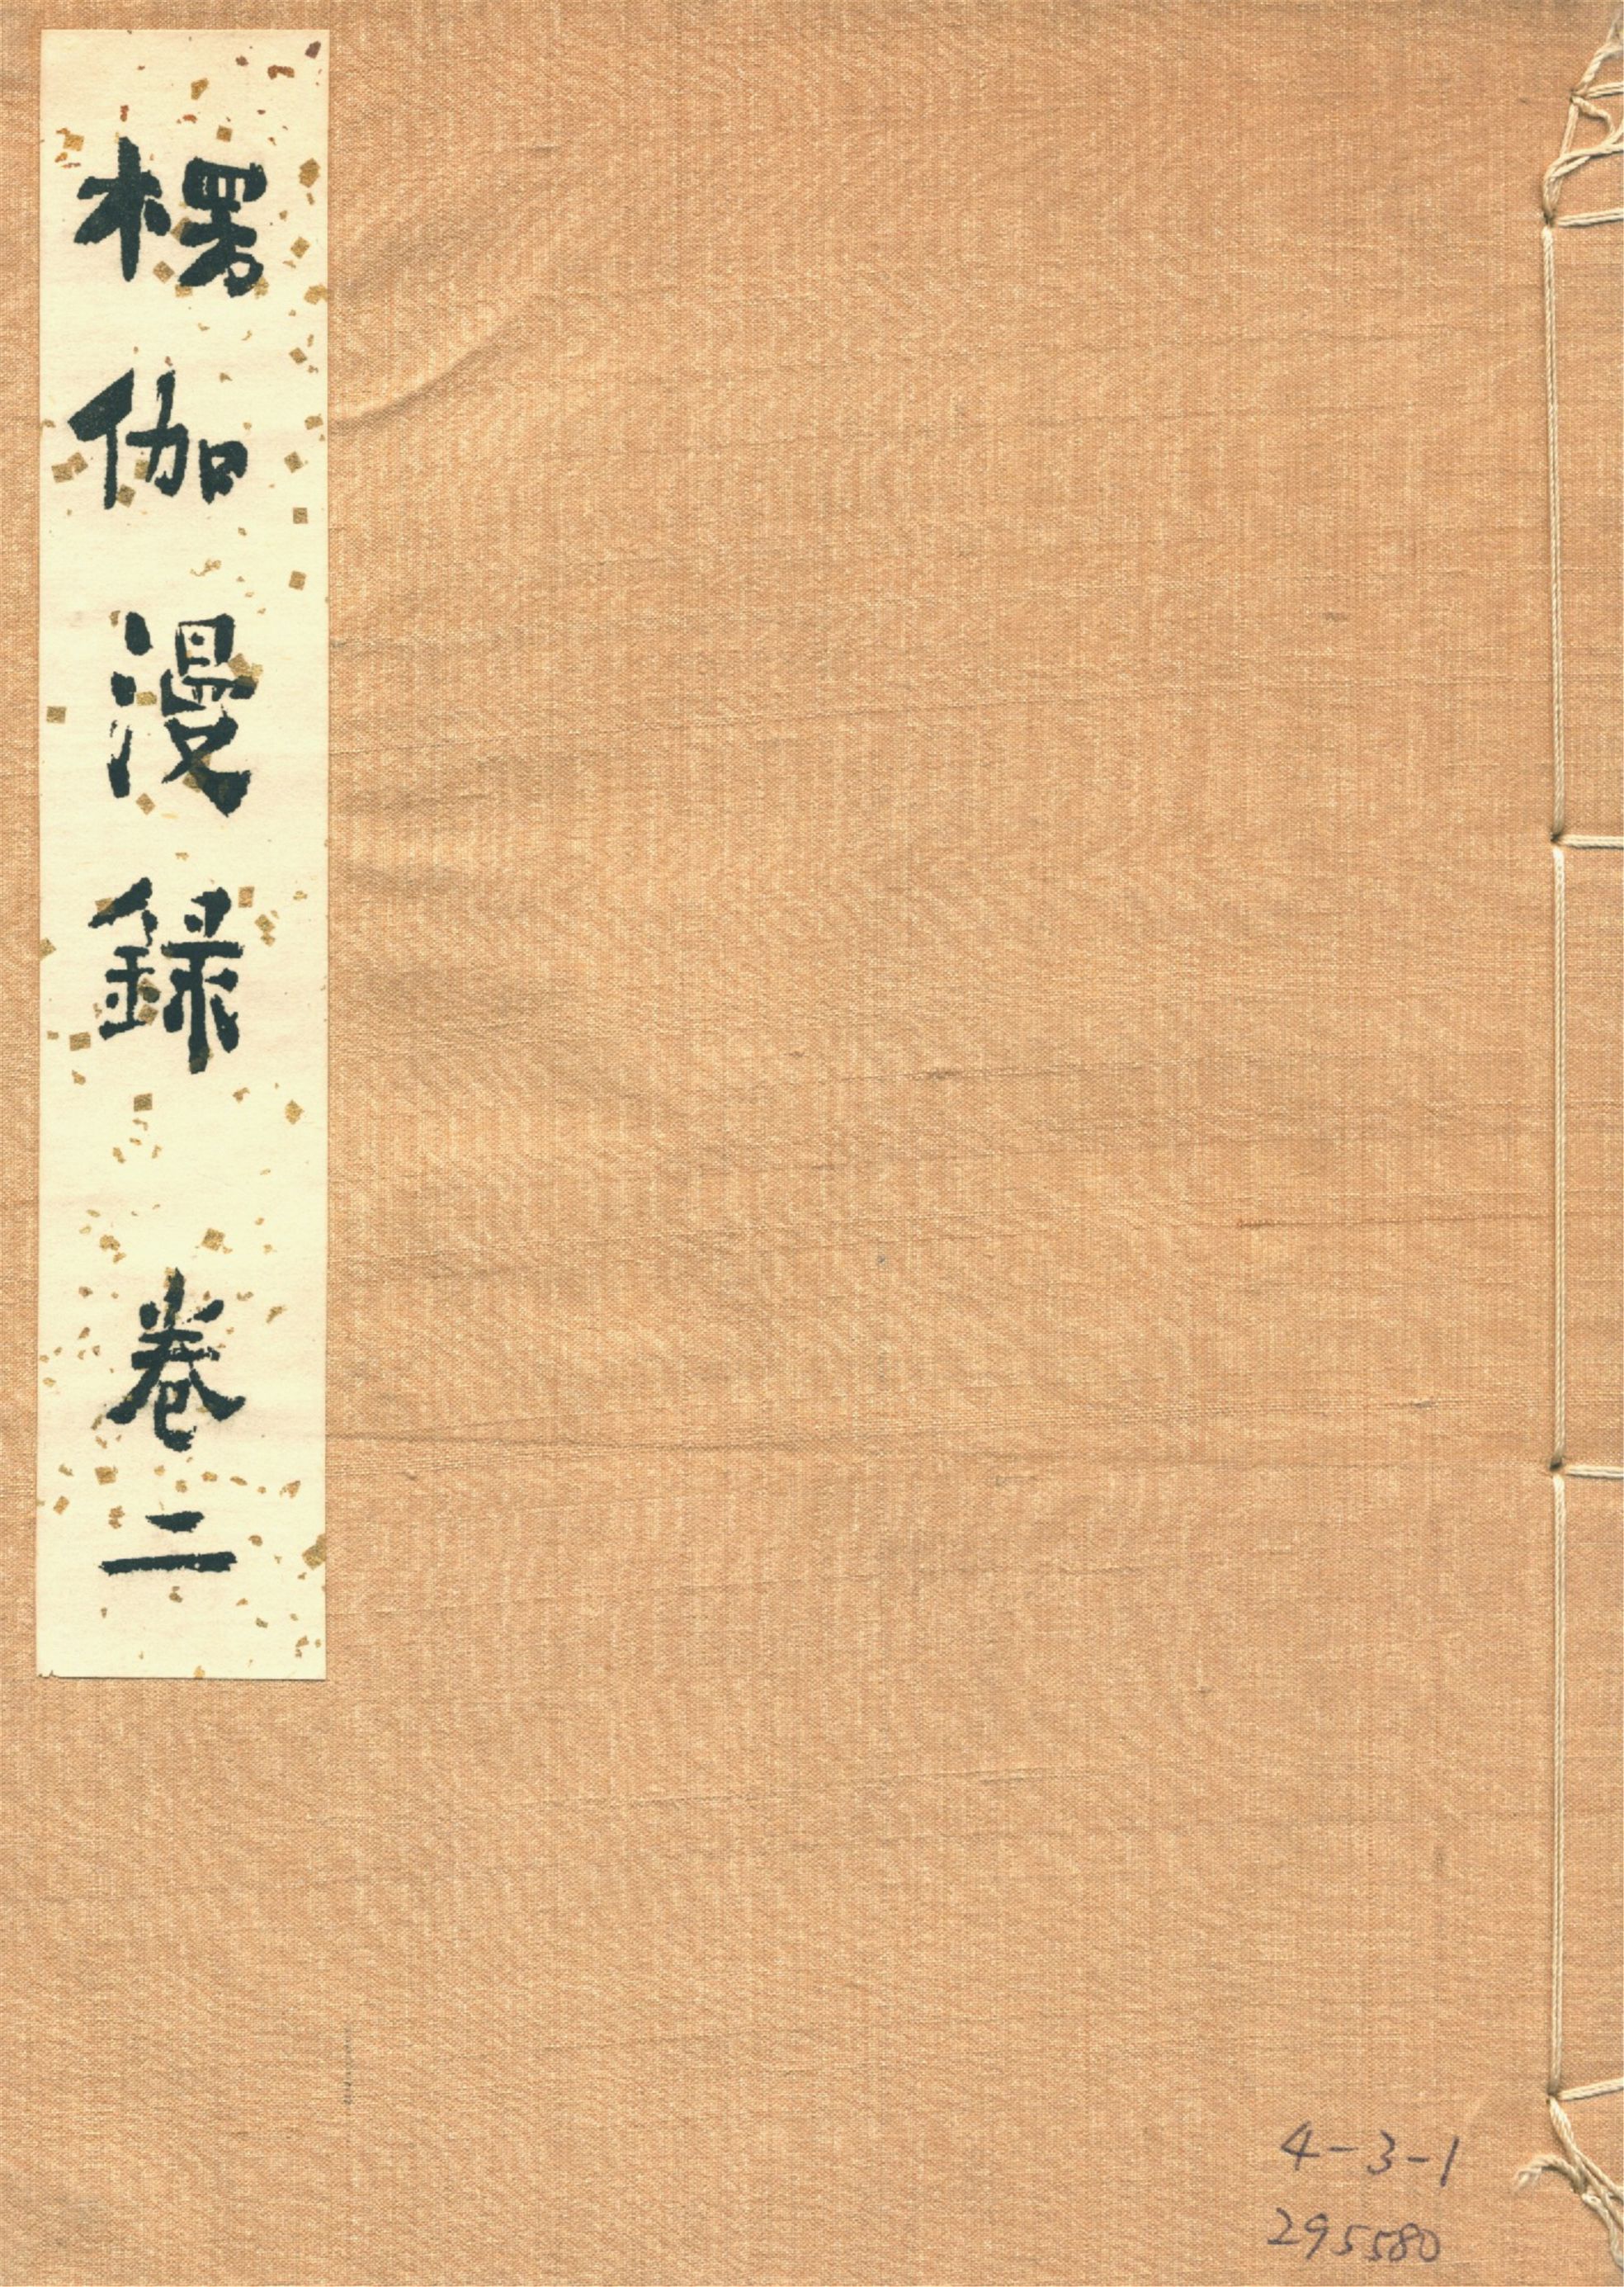 楞伽漫録 卷二
4-3-1
295580